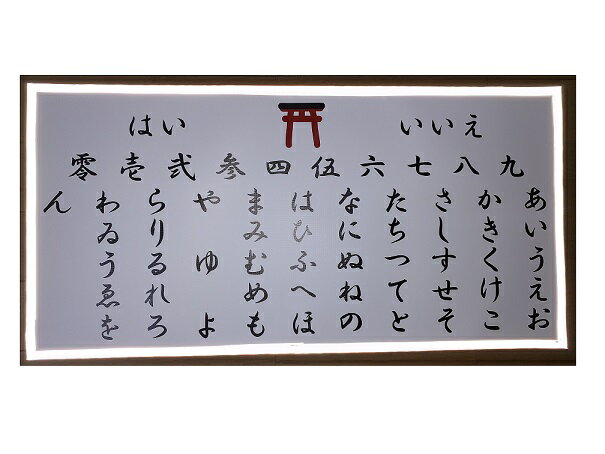 はい
いいえ
零 壱 弐 参 四 伍 六 七 八 九
あいうえお
かきくけこ
さしすせそ
たちつてと
なにぬねの
はひふへほ
まみむめも
や ゆ よ
らりるれろ
わゐうゑを
ん